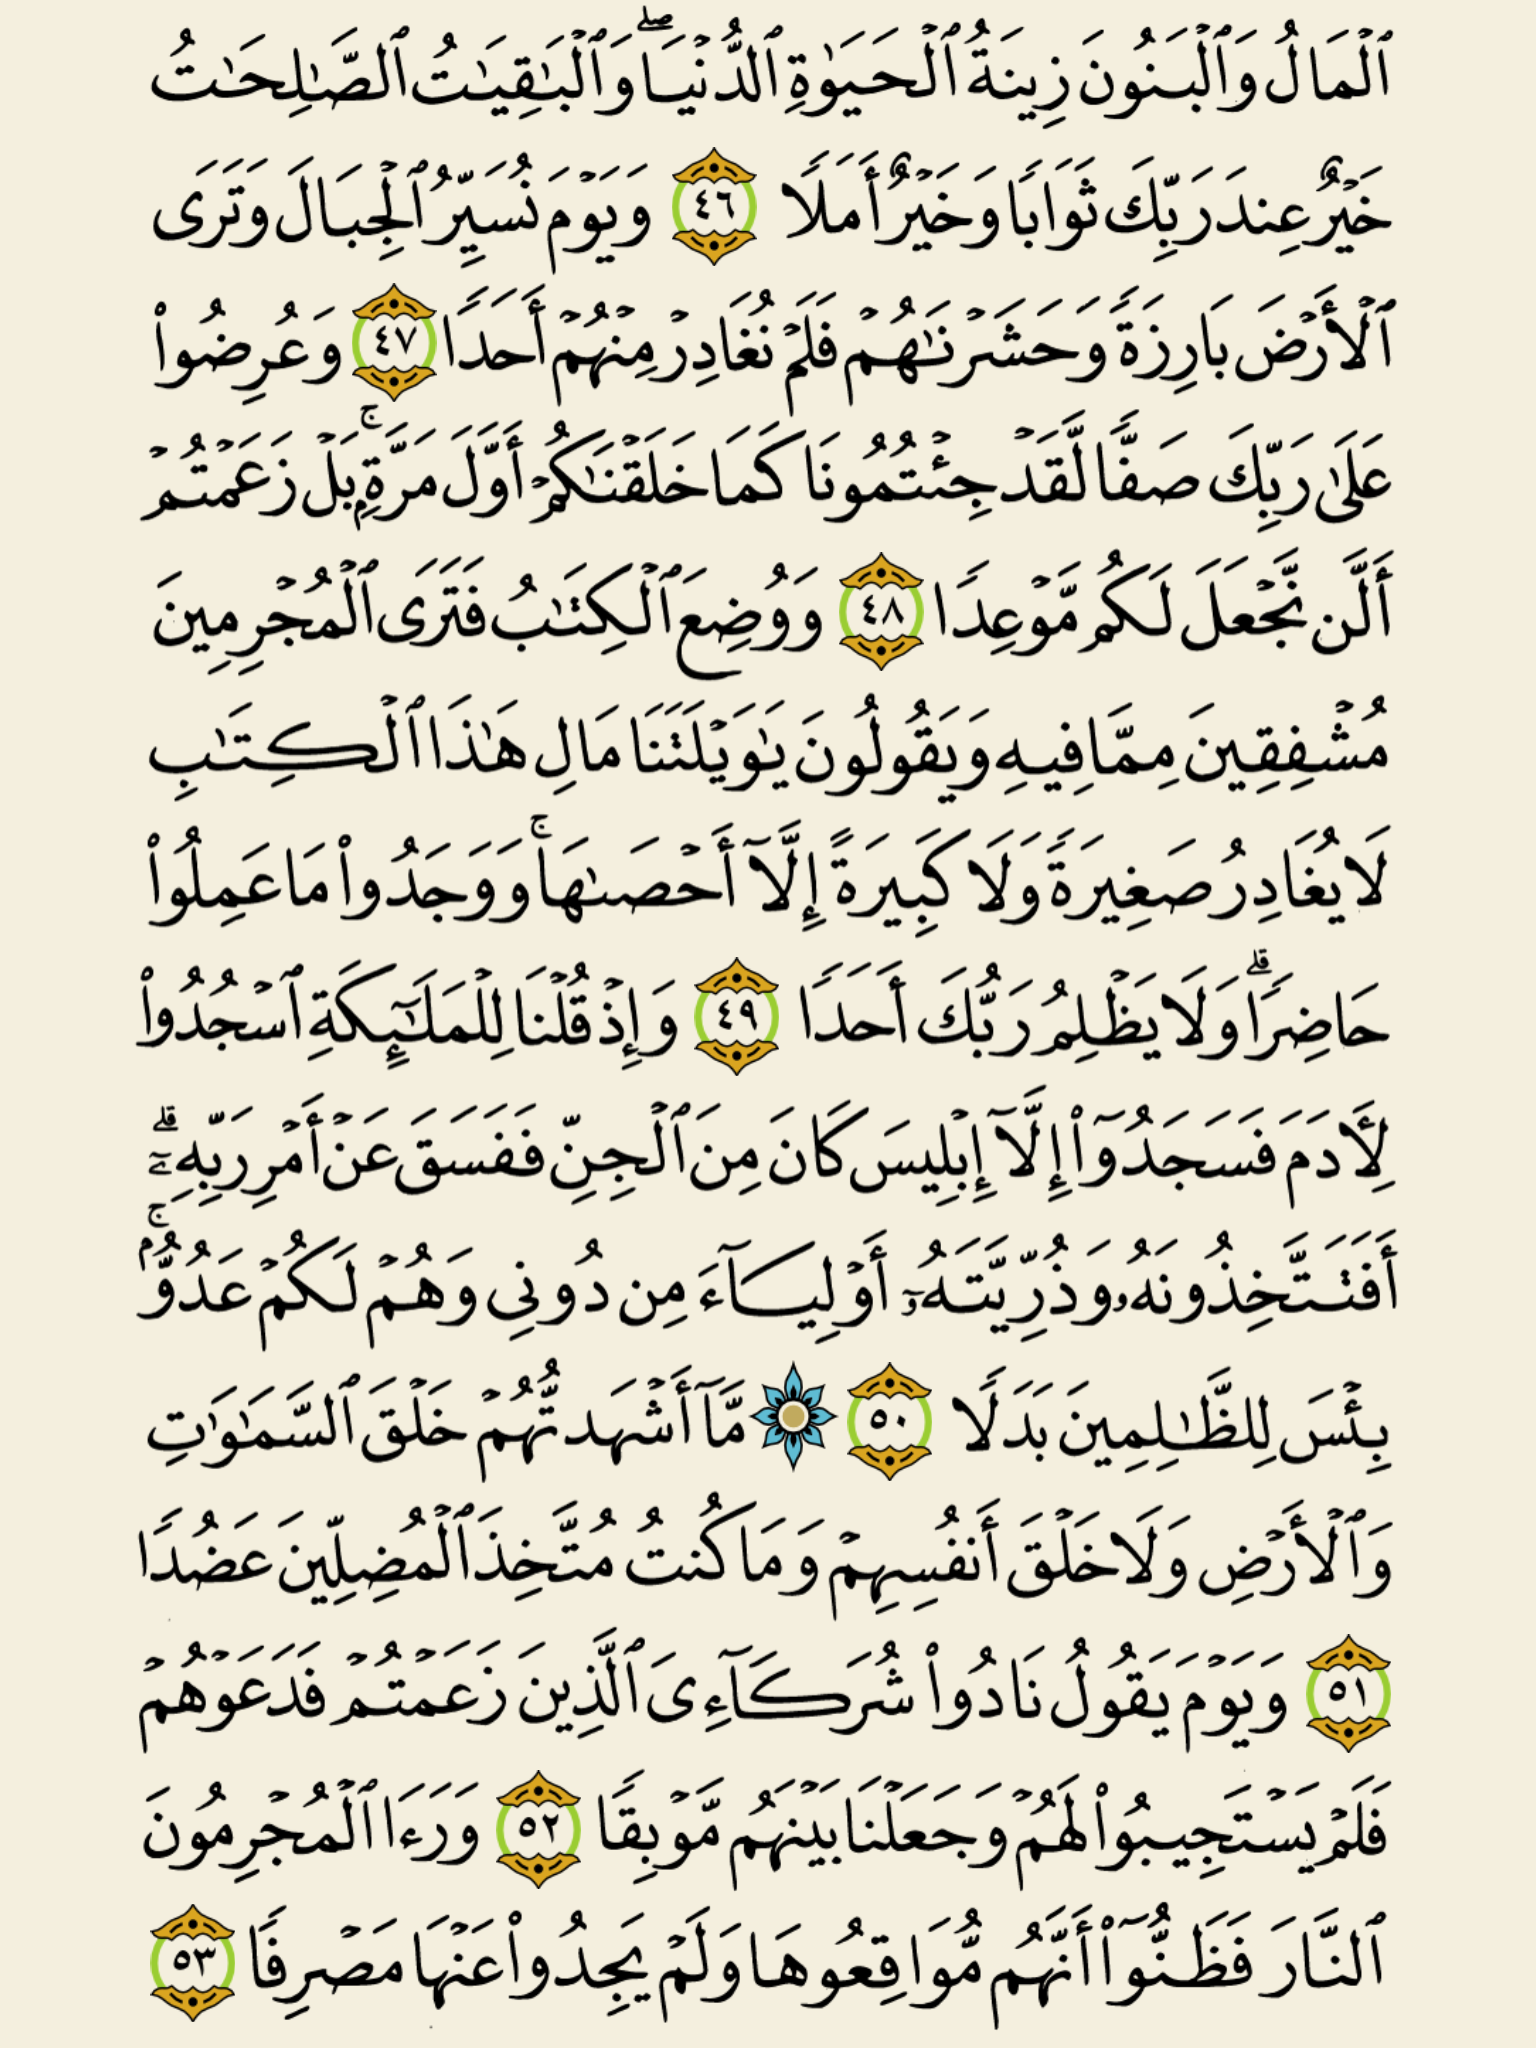 ٱلْمَالُ وَٱلْبَنُونَ زِينَةُ ٱلْحَيَوٰةِ ٱلدُّنْيَا ۖ وَٱلْبَـٰقِيَـٰتُ ٱلصَّـٰلِحَـٰتُ
خَيْرٌ عِندَ رَبِّكَ ثَوَابًا وَخَيْرٌ أَمَلًا ٤٦ وَيَوْمَ نُسَيِّرُ ٱلْجِبَالَ وَتَرَى
ٱلْأَرْضَ بَارِزَةً وَحَشَرْنَـٰهُمْ فَلَمْ نُغَادِرْ مِنْهُمْ أَحَدًا ٤٧ وَعُرِضُوا۟
عَلَىٰ رَبِّكَ صَفًّا لَّقَدْ جِئْتُمُونَا كَمَا خَلَقْنَـٰكُمْ أَوَّلَ مَرَّةٍۭ ۚ بَلْ زَعَمْتُمْ
أَلَّن نَّجْعَلَ لَكُم مَّوْعِدًا ٤٨ وَوُضِعَ ٱلْكِتَـٰبُ فَتَرَى ٱلْمُجْرِمِينَ
مُشْفِقِينَ مِمَّا فِيهِ وَيَقُولُونَ يَـٰوَيْلَتَنَا مَالِ هَـٰذَا ٱلْكِتَـٰبِ
لَا يُغَادِرُ صَغِيرَةً وَلَا كَبِيرَةً إِلَّآ أَحْصَىٰهَا ۚ وَوَجَدُوا۟ مَا عَمِلُوا۟
حَاضِرًا ۗ وَلَا يَظْلِمُ رَبُّكَ أَحَدًا ٤٩ وَإِذْ قُلْنَا لِلْمَلَـٰٓئِكَةِ ٱسْجُدُوا۟
لِـَٔادَمَ فَسَجَدُوٓا۟ إِلَّآ إِبْلِيسَ كَانَ مِنَ ٱلْجِنِّ فَفَسَقَ عَنْ أَمْرِ رَبِّهِۦٓ ۗ
أَفَتَتَّخِذُونَهُۥ وَذُرِّيَّتَهُۥٓ أَوْلِيَآءَ مِن دُونِى وَهُمْ لَكُمْ عَدُوٌّۢ ۚ
بِئْسَ لِلظَّـٰلِمِينَ بَدَلًا ٥٠ مَّآ أَشْهَدتُّهُمْ خَلْقَ ٱلسَّمَـٰوَٰتِ
وَٱلْأَرْضِ وَلَا خَلْقَ أَنفُسِهِمْ وَمَا كُنتُ مُتَّخِذَ ٱلْمُضِلِّينَ عَضُدًا
٥١ وَيَوْمَ يَقُولُ نَادُوا۟ شُرَكَآءِىَ ٱلَّذِينَ زَعَمْتُمْ فَدَعَوْهُمْ
فَلَمْ يَسْتَجِيبُوا۟ لَهُمْ وَجَعَلْنَا بَيْنَهُم مَّوْبِقًا ٥٢ وَرَءَا ٱلْمُجْرِمُونَ
ٱلنَّارَ فَظَنُّوٓا۟ أَنَّهُم مُّوَاقِعُوهَا وَلَمْ يَجِدُوا۟ عَنْهَا مَصْرِفًا ٥٣